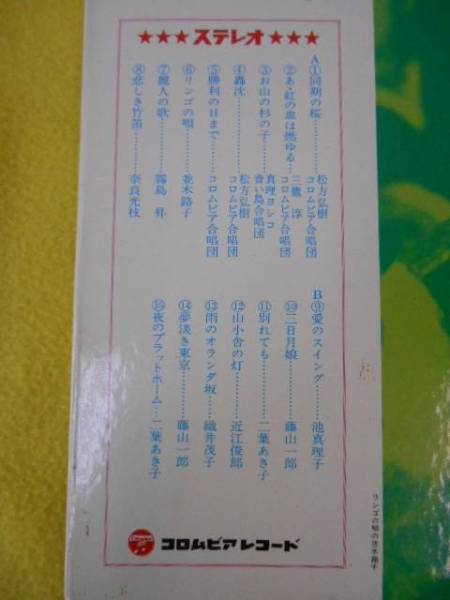 ★★★ステレオ★★★
A
①同期の桜………松方弘樹
コロムビア合唱団
②あゝ紅の血は燃ゆる…三鷹 淳
コロムビア合唱団
③お山の杉の子………真理ヨシコ
青い鳥合唱団
④轟沈………松方弘樹
コロムビア合唱団
⑤勝利の日まで………コロムビア合唱団
⑥リンゴの唄………並木路子
⑦麗人の歌………霧島 昇
⑧悲しき竹笛………奈良光枝
B
⑨愛のスイング………池真理子
⑩三日月娘………藤山一郎
⑪別れても………二葉あき子
⑫山小舎の灯………近江俊郎
⑬雨のオランダ坂………織井茂子
⑭夢淡き東京………藤山一郎
⑮夜のプラットホーム…二葉あき子
コロムビアレコード
リンゴの唄の